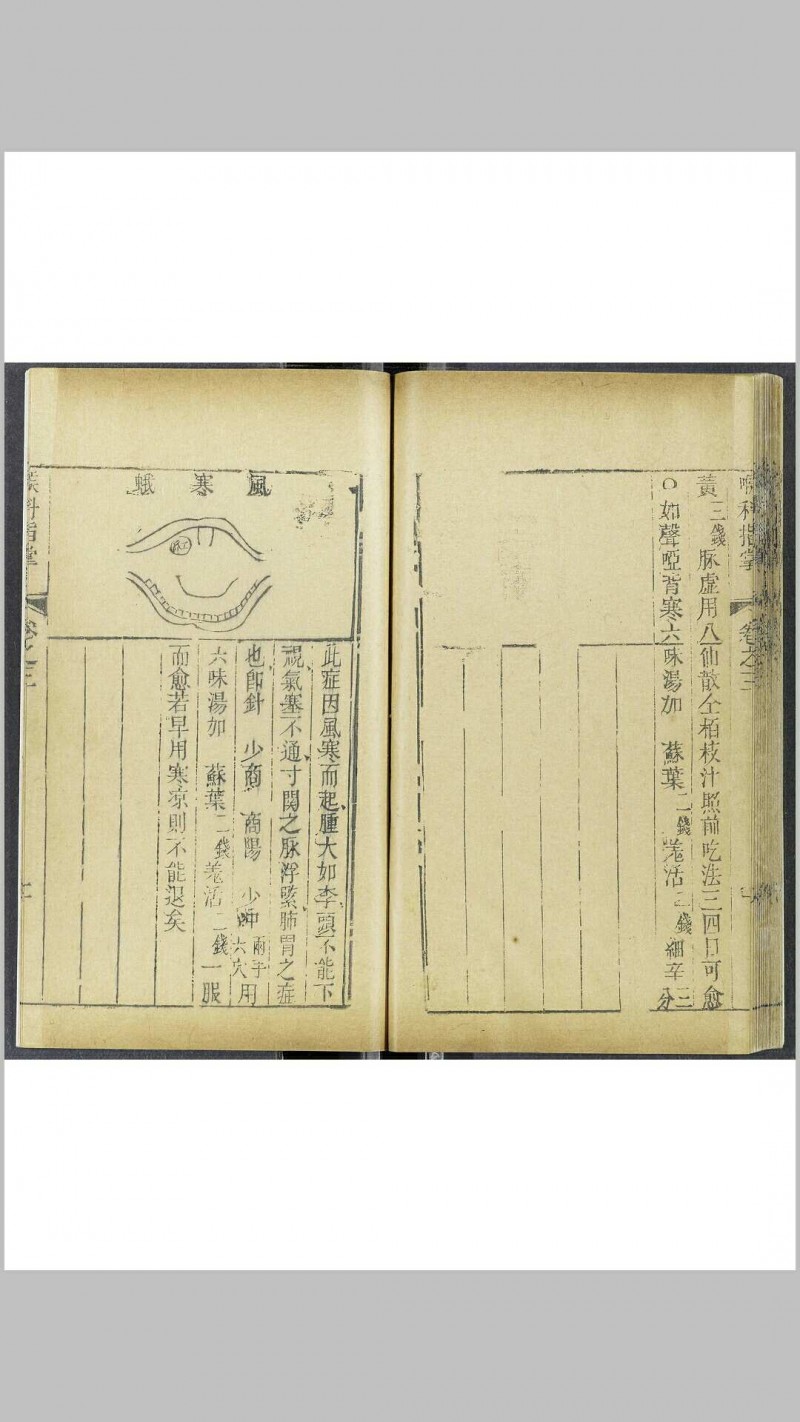 喉科指掌 卷之三
黃三錢脉虛用八仙散仝栢枝汁照前吃法三四日可愈
○如聲啞背寒六味湯加 蘇葉二錢羗活二錢細辛三分
風寒蛾
紅
此症因風寒而起腫大如李頭不能下
視氣塞不通寸関之脉浮緊肺胃之症
也即針 少商 商陽 少冲兩手六穴用
六味湯加 蘇葉二錢羗活二錢一服
而愈若早用寒凉則不能退矣
喉科指掌 卷之三